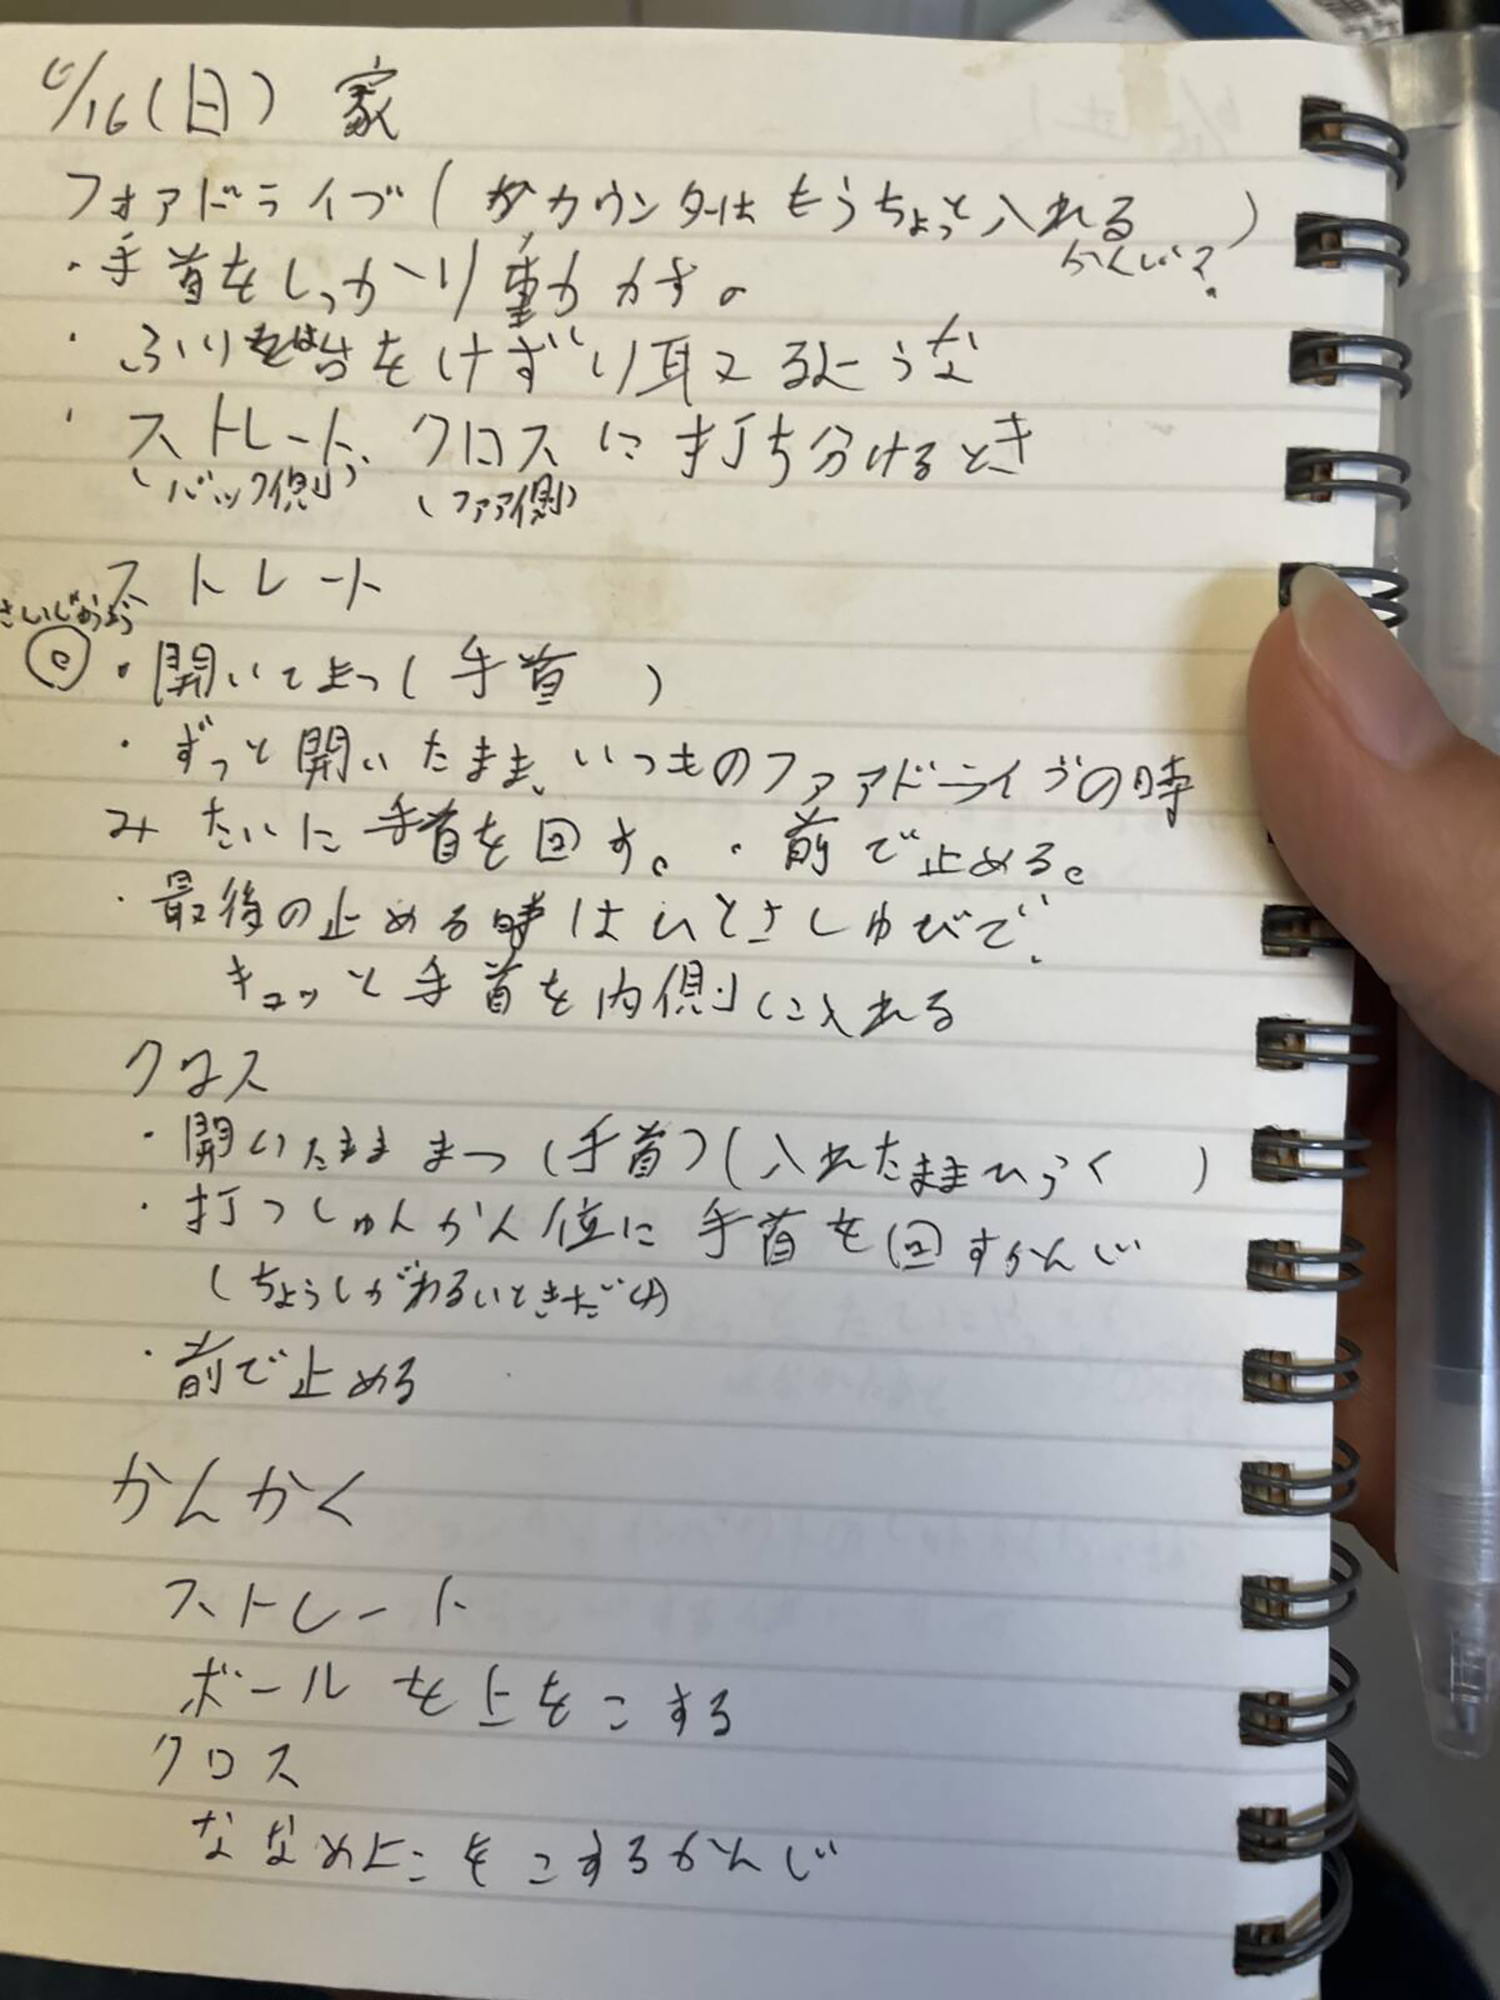 6/16(日) 家
フォアドライブ(カウンターはもうちょっと入れる
かんじで)
・手首をしっかり動かす。
・ふりは台をけずり取るような
・ストレート、クロスに打ち分けるとき
(バック側) (ファア側)
ストレート
さいじゅうよう
◎・開いてまつ(手首 )
・ずっと開いたまま、いつものファアドライブの時
みたいに手首を回す。・前で止める。
・最後の止める時はひとさしゆびで、
キュッと手首を内側に入れる
クロス
・開いたまままつ(手首)(入れたままひらく )
・打つしゅんかん位に手首を回すかんじ
(ちょうしがわるいときだけ)
・前で止める
かんかく
ストレート
ボールを上をこする
クロス
ななめよこをこするかんじ